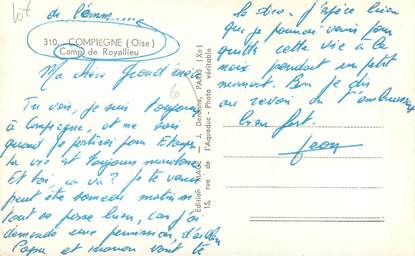 lot
de l'émm......e
310. COMPIEGNE (Oise)
Camp de Royallieu
Ma chère Grand'mère
Tu vois, je suis toujours
à Compiègne, et ne sais
quand je partirai pour Etampes
la vie est toujours monotone
Et toi ça va? Je te verrai
peut être samedi matin si
tout se passe bien, car j'ai
demandé une permission, d'ailleurs
Papa et maman vont te
le dire. J'espère bien
que je pourrai venir pour
quitter cette vie à la
noix pendant un petit
moment. Bon je dis
au revoir en t'embrassant
bien fort.
Jean
Edition MAGE - J. PARIS (Xe)
15, rue de l'Aqueduc - Photo véritable